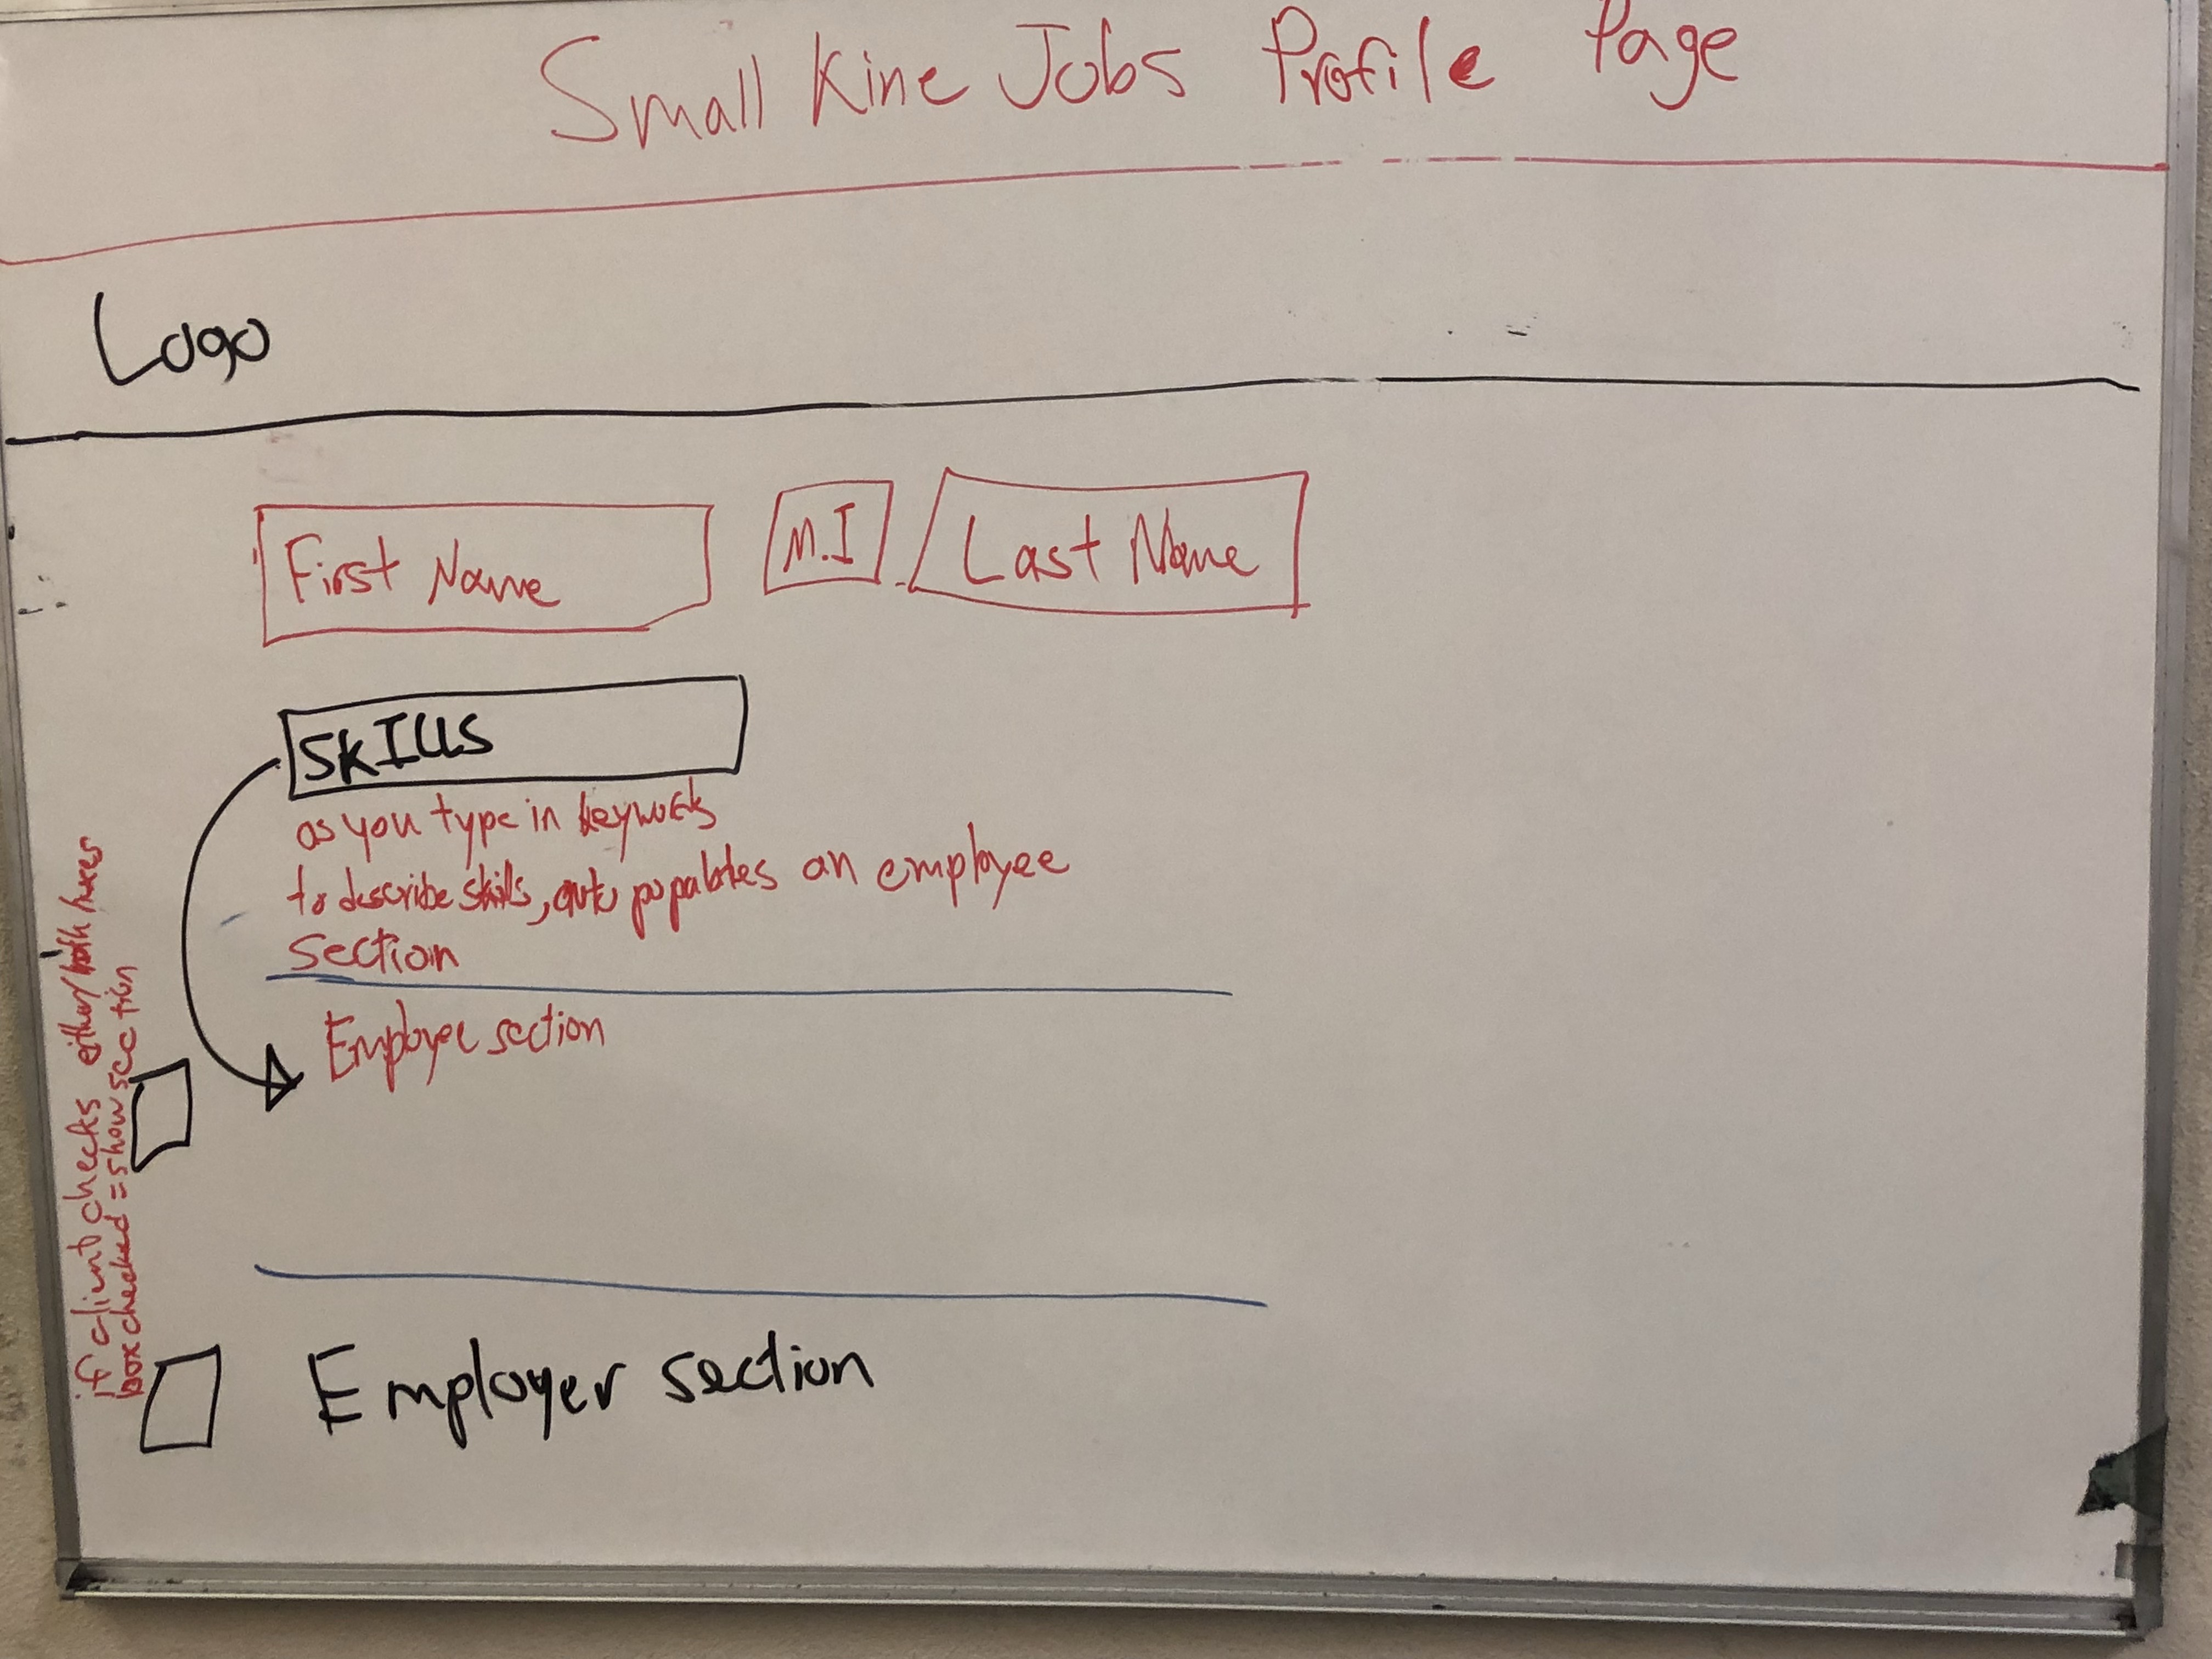 Small Kine Jobs Profile Page
Logo
First Name
M.I
Last Name
SKILLS
as you type in keywords
to describe skills, auto populates an employee
section
Employee section
if client checks either/both boxes
box checked = show section
Employer section